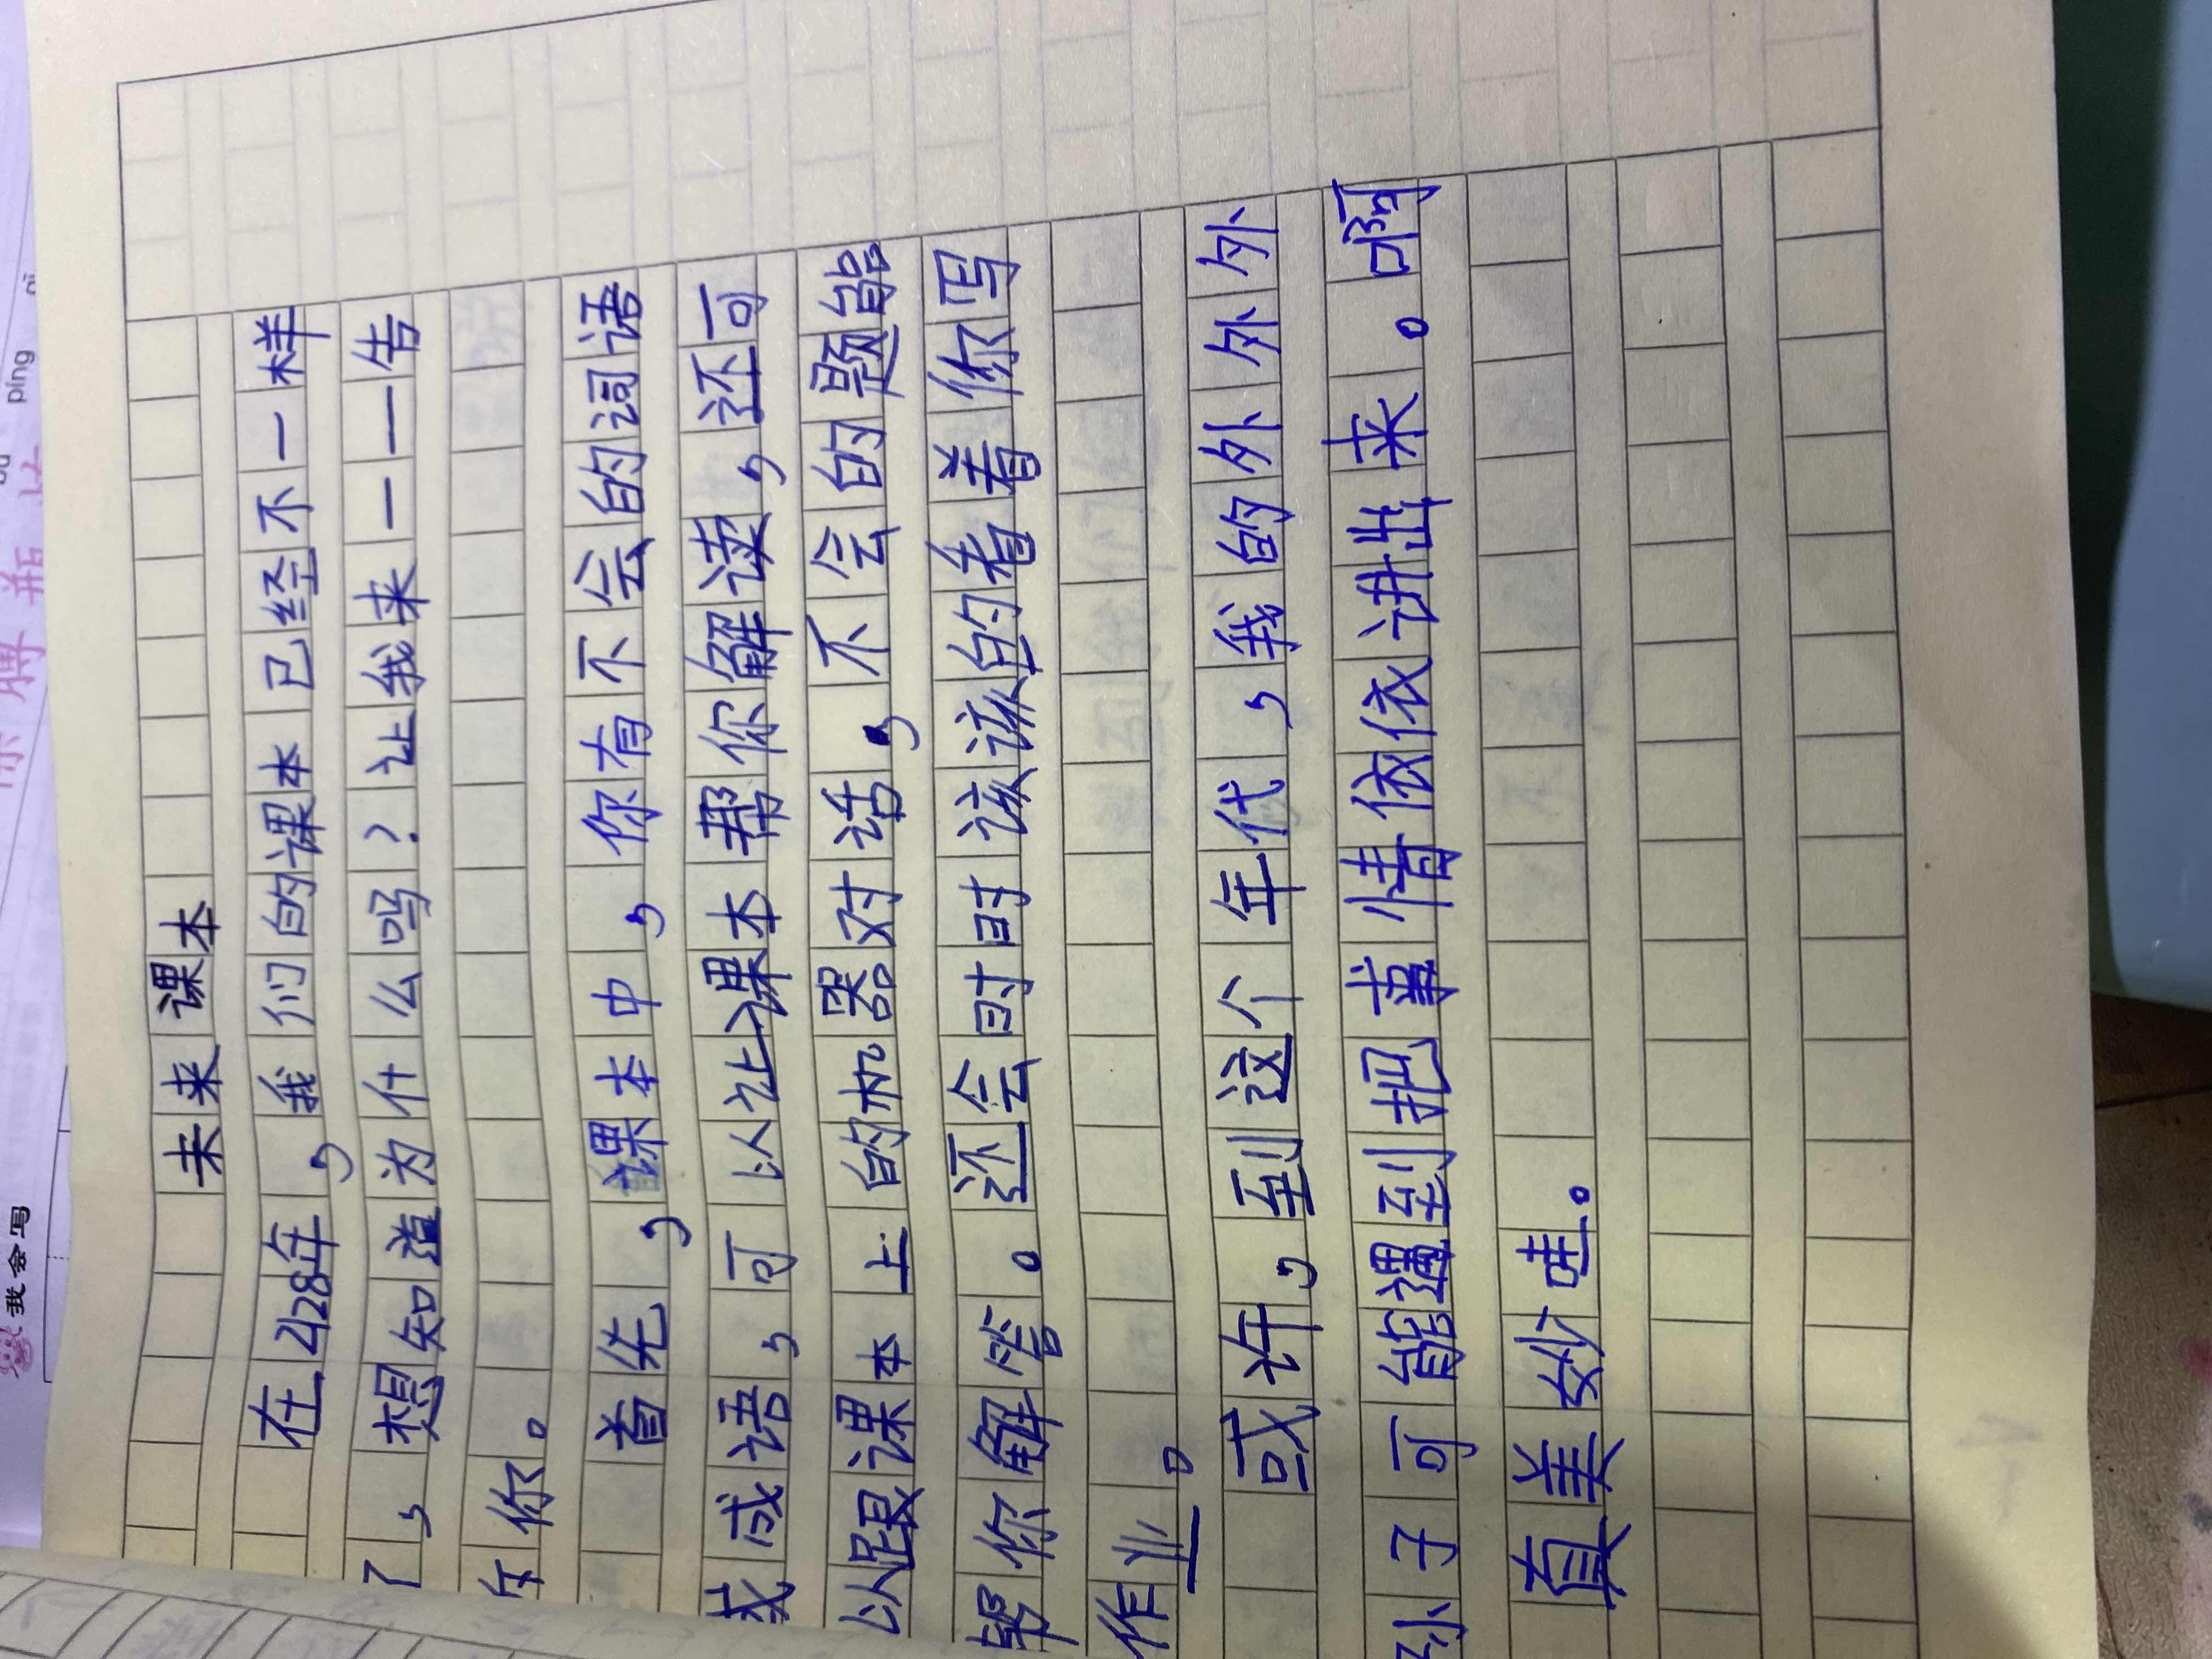 未来课本
在2128年,我们的课本已经不一样
了,想知道为什么吗?让我来一一告
你。
首先,课本中,你有不会的词语
或成语,可以让课本帮你解读,还可
以跟课本上的机器对话,不会的题能
帮你解答。还会时时该该的看着你写
作业。
或许,到这个年代,我的外外外
孙子可能遇到把事情依依讲出来。啊
真美妙哇。
我会写
píng